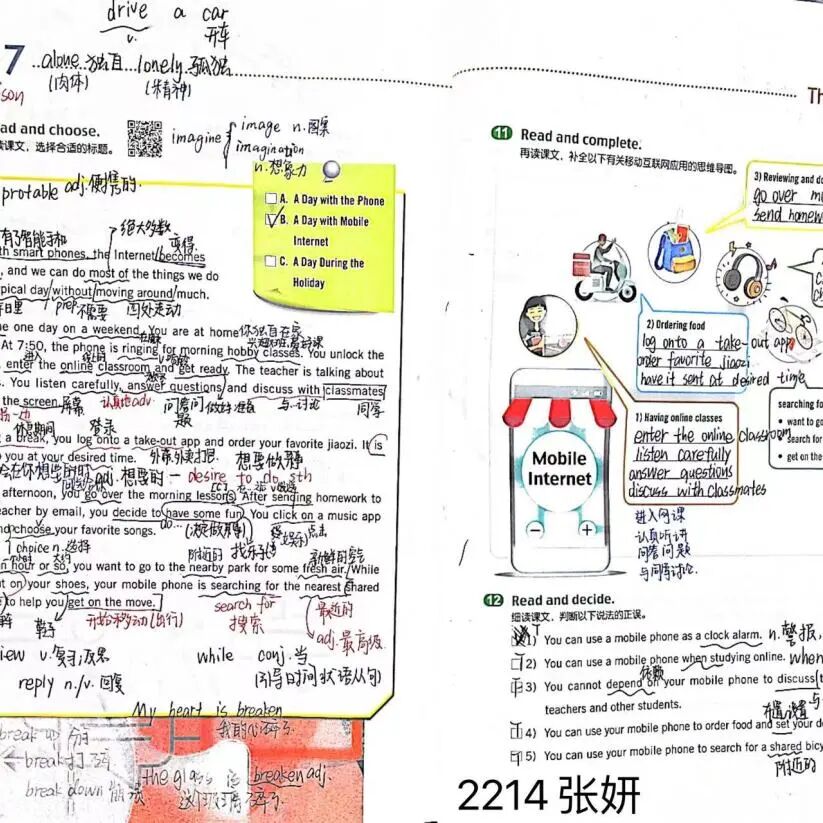 drive a car
v. 开车
7 alone 独自 lonely 孤独
(肉体) (精神)
son
ad and choose.
读课文，选择合适的标题。
imagine
image n. 图案
imagination
n. 想象力
protable adj. 便携的
A. A Day with the Phone
B. A Day with Mobile
Internet
C. A Day During the
Holiday
有了智能手机 绝大多数 变得
th smart phones, the Internet becomes
, and we can do most of the things we do
pical day without moving around much.
prep 不需要 四处走动
e one day on a weekend. You are at home 你独自在家
At 7:50, the phone is ringing for morning hobby classes. You unlock the
enter the online classroom and get ready. The teacher is talking about
s. You listen carefully, answer questions and discuss with classmates
the screen. 屏幕 认真地 adv. 回答问题 做好准备 与...讨论 同学
休息期间 登录
a break, you log onto a take-out app and order your favorite jiaozi. It is
you at your desired time. 想要做事
adj. 想要的 — desire to do sth
afternoon, you go over the morning lessons. After sending homework to
eacher by email, you decide to have some fun. You click on a music app
nd choose your favorite songs.
choice n. 选择 附近的 找乐子 新鲜的空气
n hour or so, you want to go to the nearby park for some fresh air. While
ut on your shoes, your mobile phone is searching for the nearest shared
e to help you get on the move.
鞋子 开始移动(出行) search for 最近的
搜索 adj. 最高级
view v. 复习 while conj. 当
reply n./v. 回复 引导时间状语从句)
My heart is breaken
我的心碎了
break up 分
break 打碎
break down 崩溃
the glass is breaken adj.
这个玻璃碎了
Th
11 Read and complete.
再读课文，补全以下有关移动互联网应用的思维导图。
3) Reviewing and do
go over m
send homew
2) Ordering food
log onto a take-out app
order favorite jiaozi
have it sent at desired time
1) Having online classes
enter the online classroom
listen carefully
answer questions
discuss with classmates
searching fo
want to go
search for
get on the
Mobile
Internet
进入网课
认真听讲
回答问题
与同学讨论.
12 Read and decide.
细读课文，判断以下说法的正误。
T 1) You can use a mobile phone as a clock alarm. n. 警报,
2) You can use a mobile phone when studying online. when
依赖
3) You cannot depend on your mobile phone to discuss
teachers and other students. 布置,设置
4) You can use your mobile phone to order food and set your d
5) You can use your mobile phone to search for a shared bicy
附近的
2214 张妍